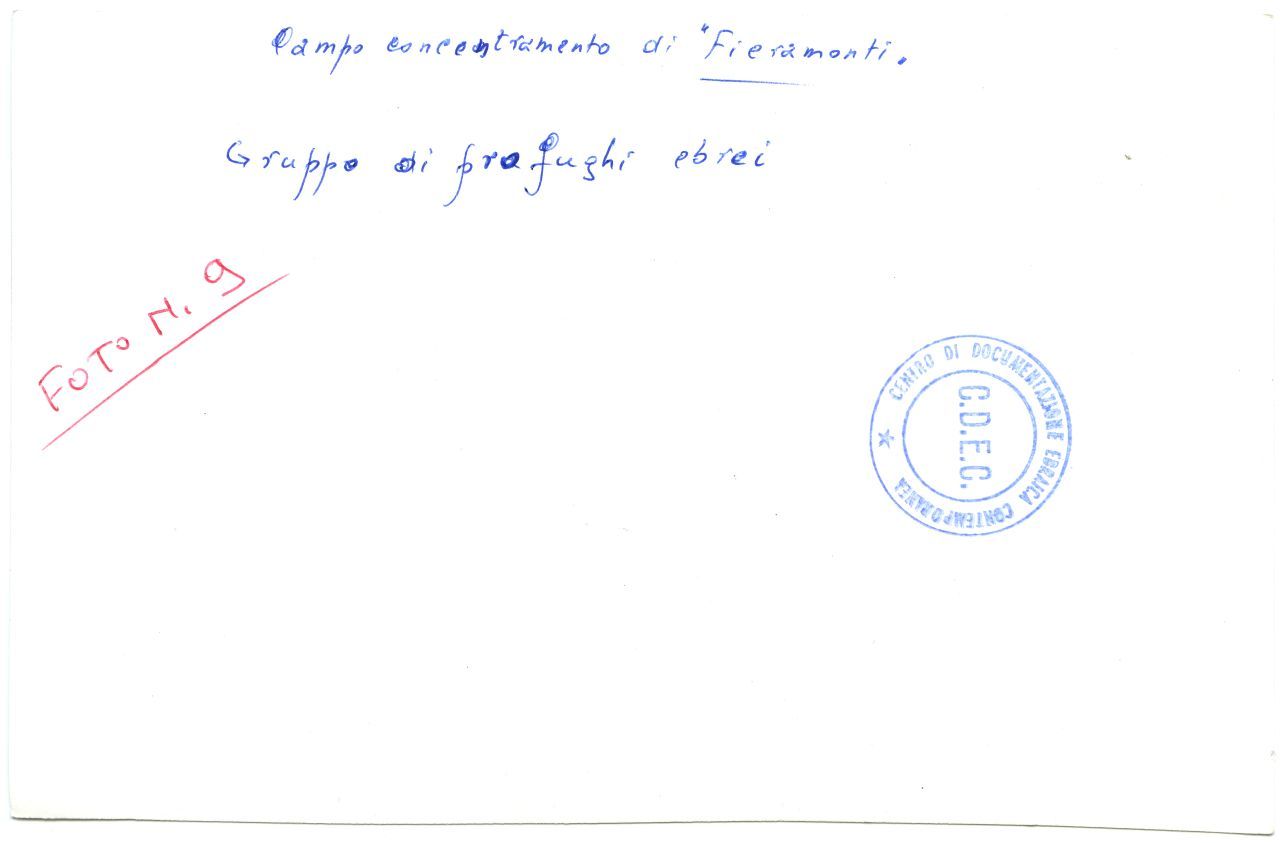 Campo concentramento di "Fieramonti.
Gruppo di profughi ebrei
FOTO N. 9
CENTRO DI DOCUMENTAZIONE EBRAICA CONTEMPORANEA
C.D.E.C.